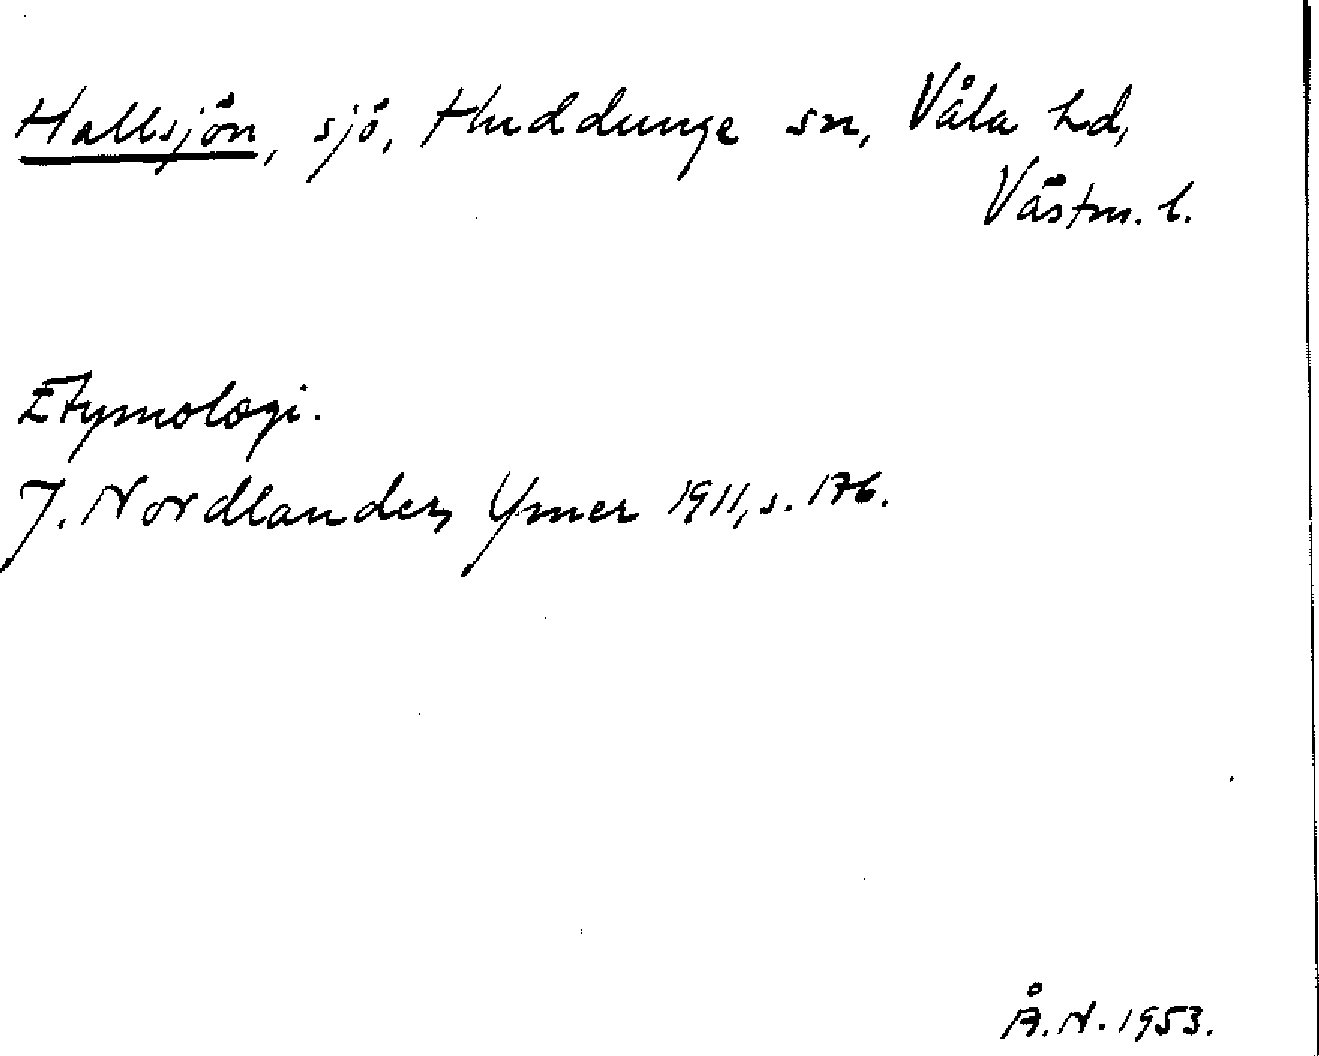 Hallsjön, sjö, Huddunge sn, Våla hd,
Västm. l.
Etymologi.
J. Nordlander, Ymer 1911, s. 176.
Å.N. 1953.